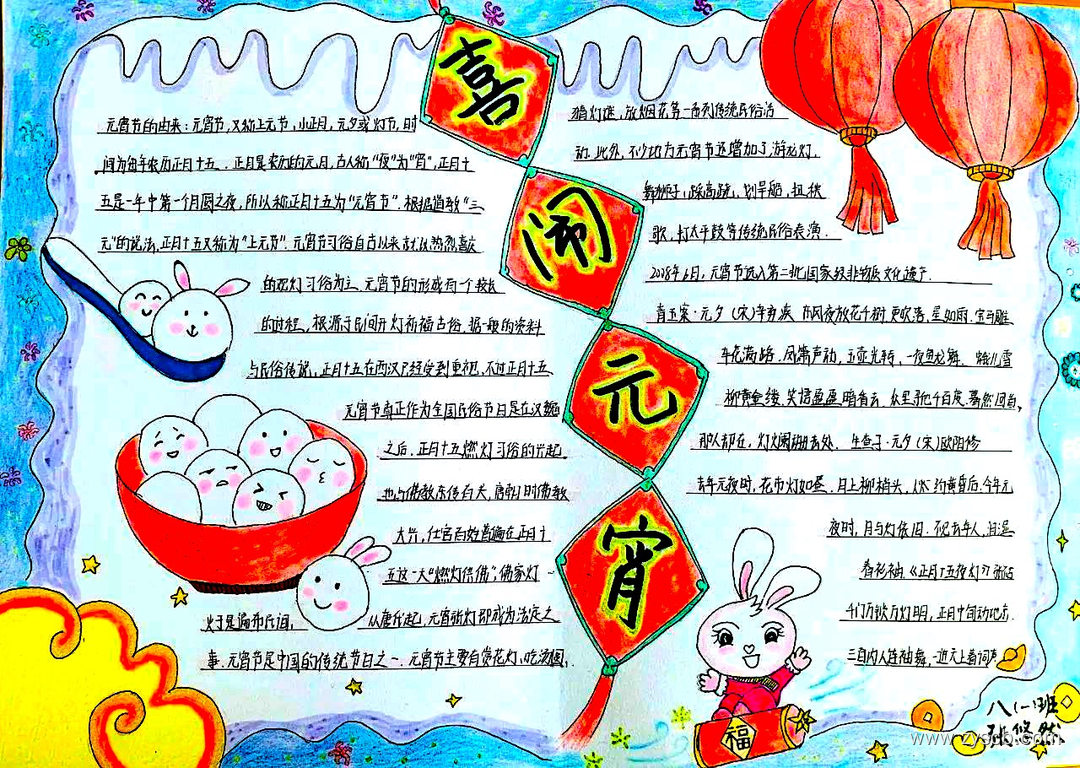 喜
闹
元
宵
元宵节的由来：元宵节，又称上元节，小正月，元夕或灯节，时
间为每年农历正月十五．正月是农历的元月，古人称“夜”为“宵”，正月十
五是一年中第一个月圆之夜，所以称正月十五为“元宵节”．根据道教“三
元”的说法，正月十五又称为“上元节”．元宵节习俗自古以来就以热烈喜庆
的花灯习俗为主．元宵节的形成有一个较长
的过程，根源于民间开灯祈福古俗．据一般的资料
与民俗传说，正月十五在西汉已经受到重视，不过正月十五
元宵节真正作为全国民俗节日是在汉魏
之后．正月十五燃灯习俗的兴起
也与佛教东传有关，唐朝时佛教
大兴，仕官百姓普遍在正月十
五这一天“燃灯供佛”，佛家灯
火于是遍布民间，
从唐代起，元宵张灯即成为法定之
事．元宵节是中国的传统节日之一．元宵节主要有赏花灯，吃汤圆，
猜灯谜，放烟花等一系列传统民俗活
动．此外，不少地方元宵节还增加了游龙灯，
舞狮子，踩高跷，划旱船，扭秧
歌，打太平鼓等传统民俗表演．
6月，元宵节选入第二批国家级非物质文化遗产．
青玉案·元夕（宋）辛弃疾 东风夜放花千树 更吹落，星如雨．宝马雕
车花满路．凤箫声动，玉壶光转，一夜鱼龙舞．蛾儿雪
柳黄金缕．笑语盈盈暗香去．众里寻他千百度．蓦然回首，
那人却在，灯火阑珊去处．生查子·元夕（宋）欧阳修
去年元夜时，花市灯如昼．月上柳梢头，人约黄昏后．今年元
夜时，月与灯依旧．不见去年人，泪湿
春衫袖．《正月十五夜灯》张祜
千门开锁万灯明，正月中旬动地京．
三百内人连袖舞，一进天上着词声
福
八（一）班
悠然